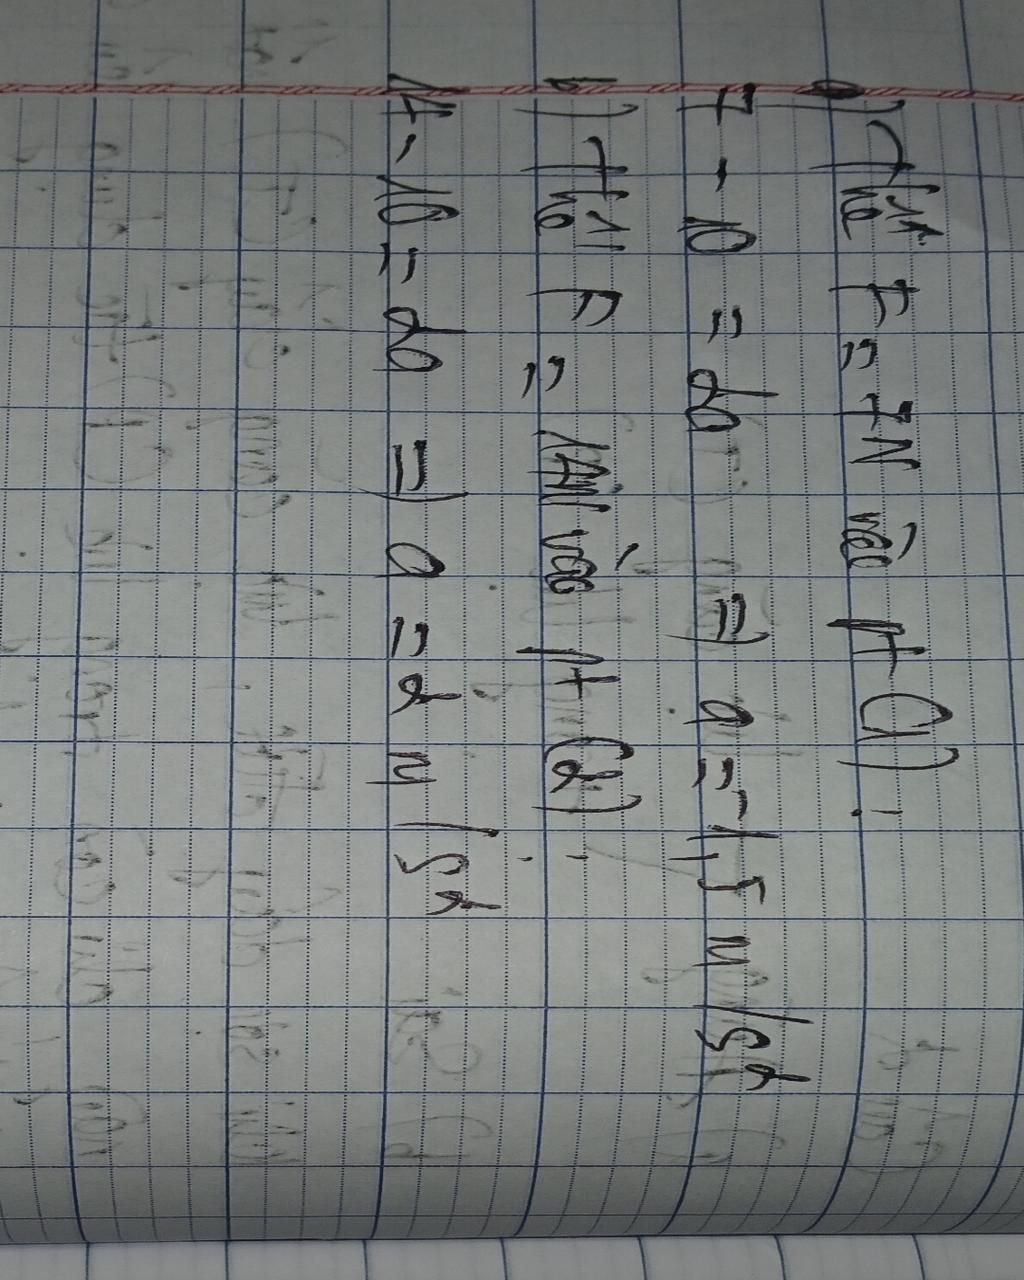 a) Thế F = 7N vào pt (1):
7 - 10 = 2a => a = -1,5 m/s2
b) Thế F = 14N vào pt (2):
14 - 10 = 2a => a = 2 m/s2